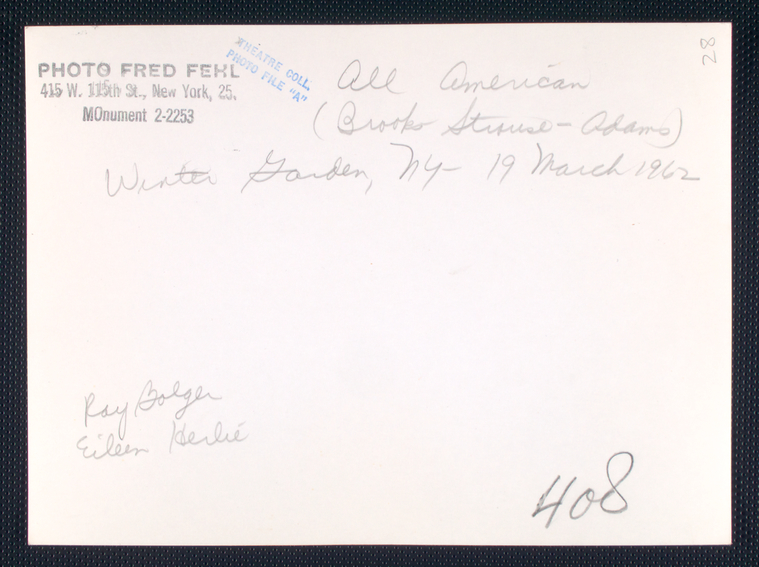 PHOTO FRED FEHL
415 W. 115th St., New York, 25.
MOnument 2-2253
THEATRE COLL.
PHOTO FILE "A"
28
All American
(Brooks Strouse-Adams)
Winter Garden, NY- 19 March 1962
Ray Bolger
Eileen Herlie
408